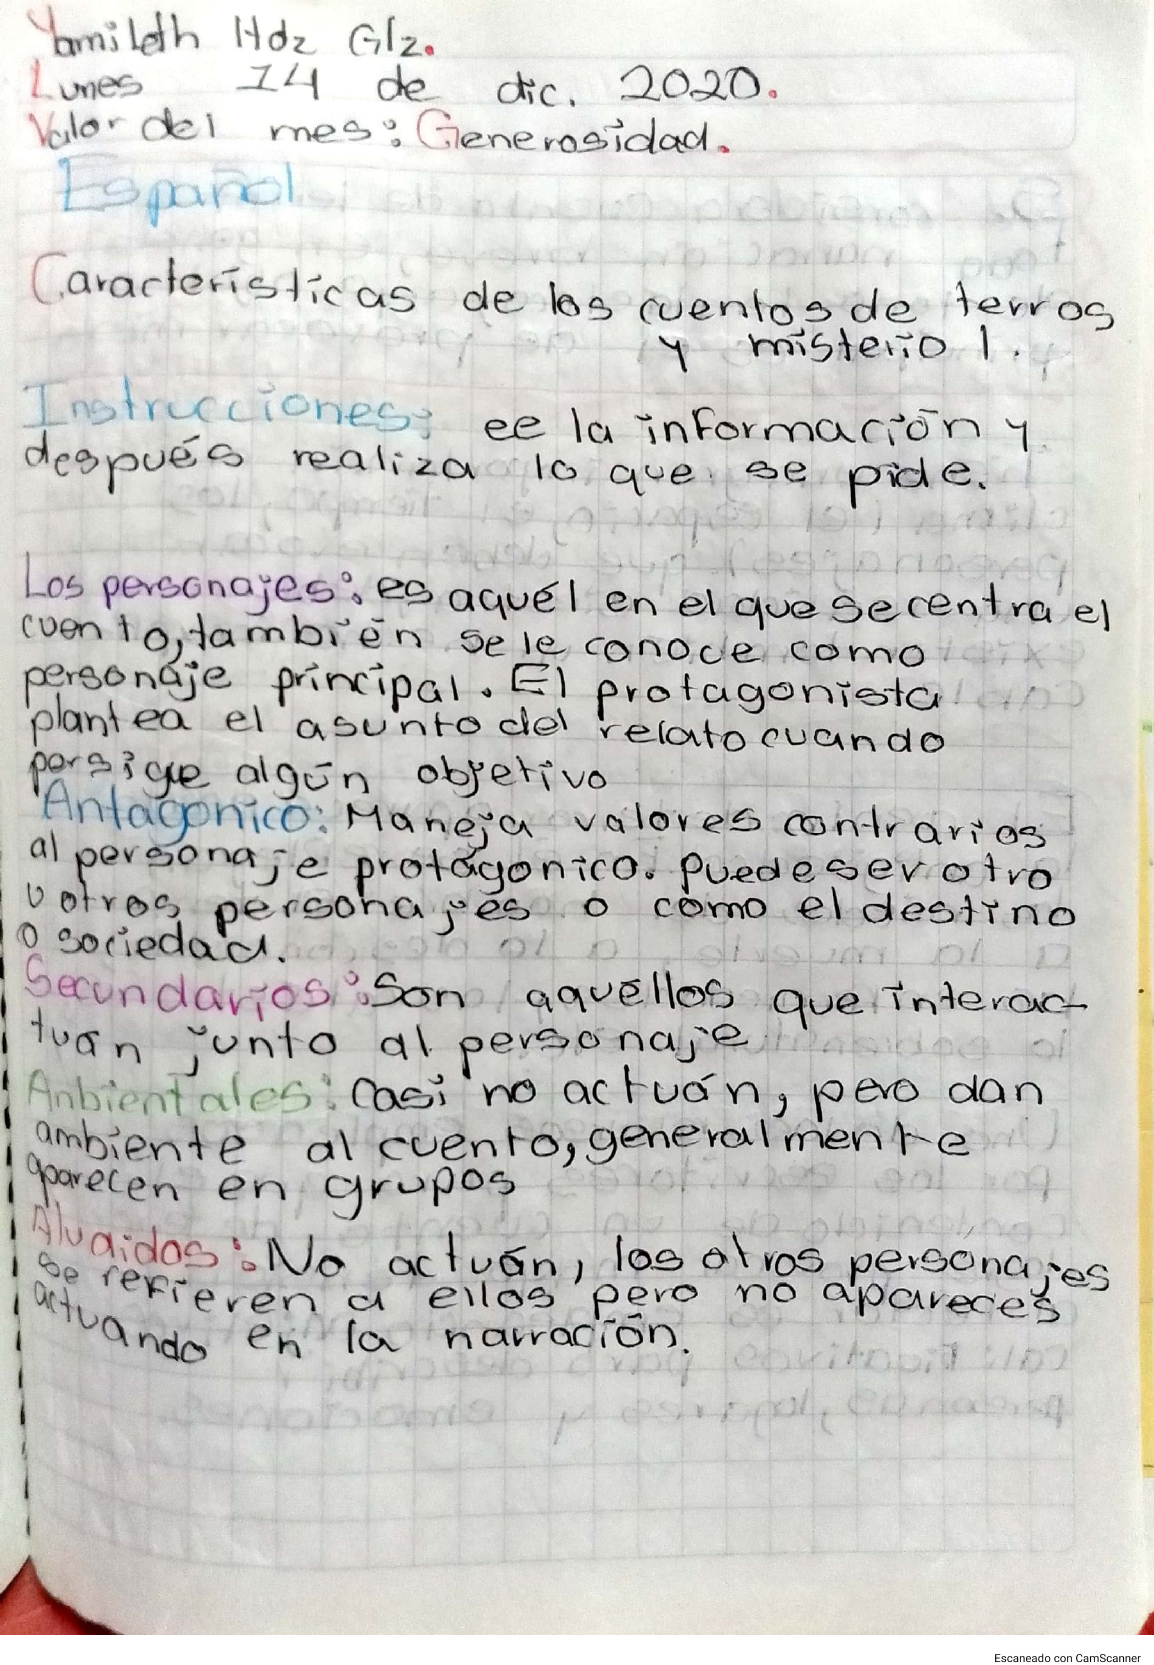 Yamileth Hdz Glz.
Lunes 14 de dic. 2020.
Valor del mes: Generosidad.
Español
Características de los cuentos de terros
y misterio 1.
Instrucciones: ee la información y
después realiza lo que se pide.
Los personajes: es aquél en el que se centra el
cuento, también se le conoce como
personaje principal. El protagonista
plantea el asunto del relato cuando
persigue algún objetivo
Antagonico: Maneja valores contrarios
al personaje protágonico. Puede ser otro
u otros personajes o como el destino
o sociedad.
Secundarios: Son aquellos que interac-
tuán junto al personaje
Anbientales: Casi no actuán, pero dan
ambiente al cuento, generalmente
aparecen en grupos
Aluaidos: No actuán, los otros personajes
se refieren a ellos pero no apareces
actuando en la narración.
Escaneado con CamScanner